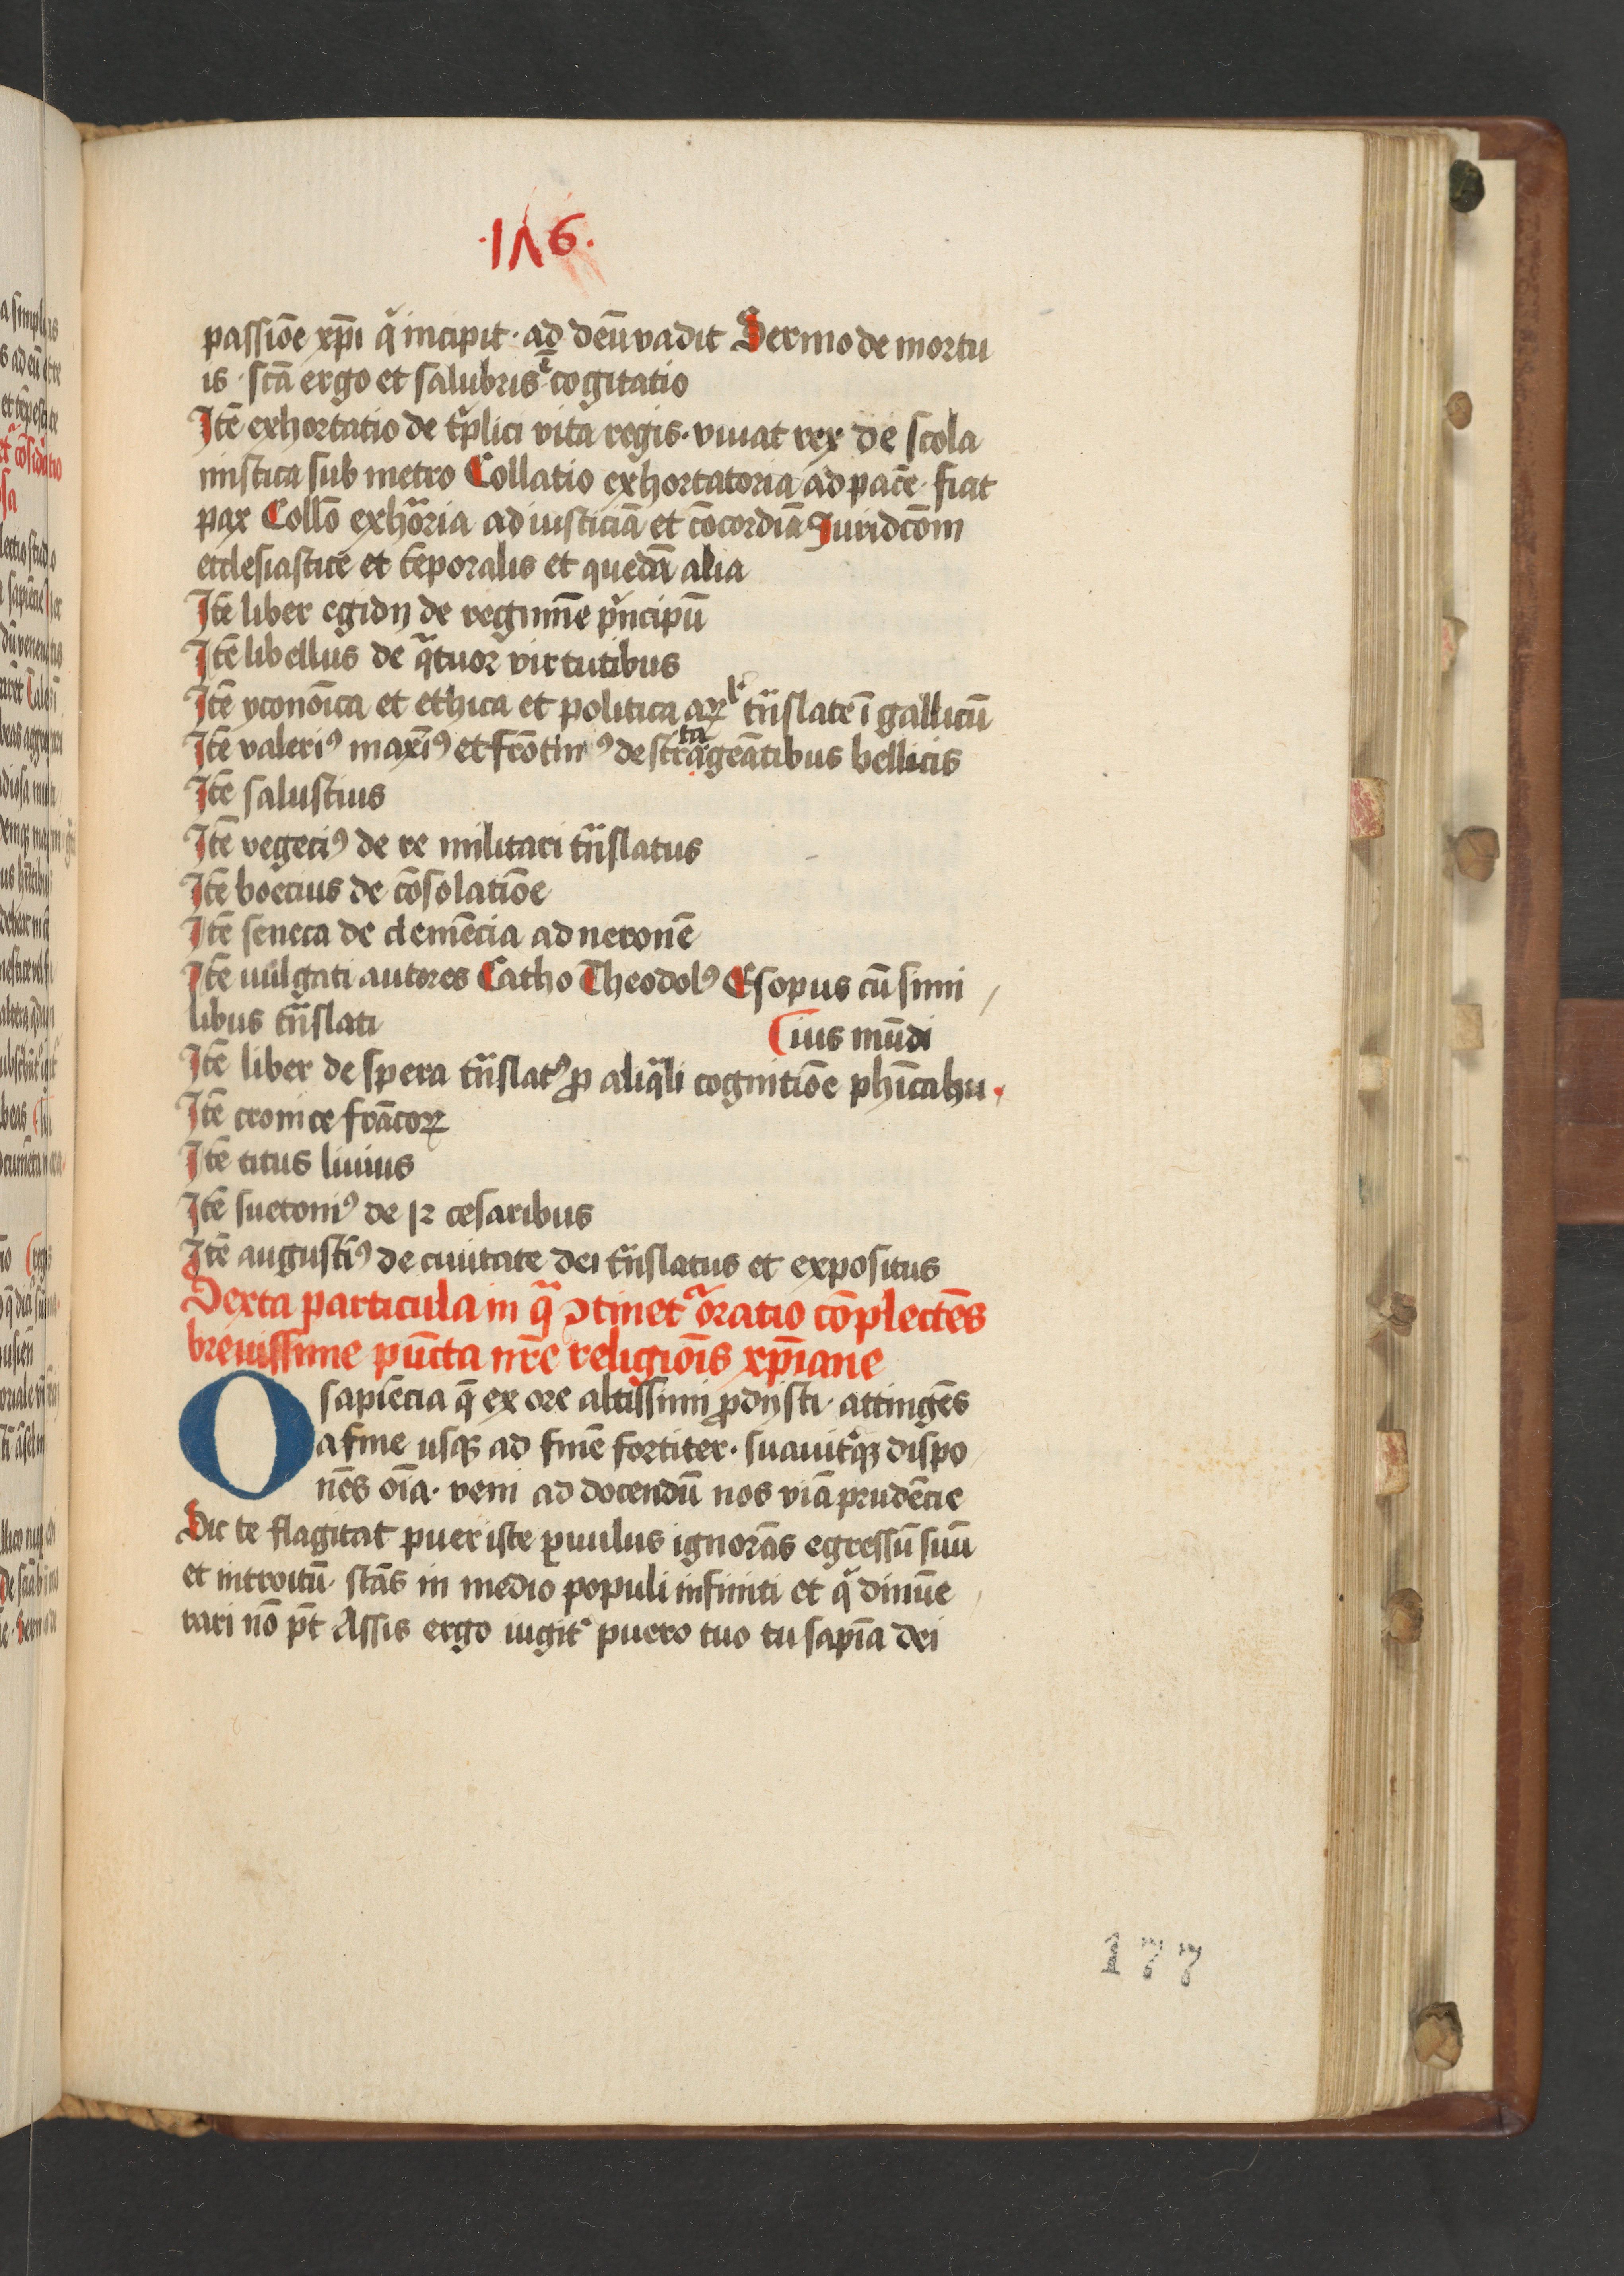 ·1Λ6·
passiōe xp̄i q̄ incipit · ad deū vadit Sermo de mortu
is · scā ergo et salubris ē cogitatio
Itē exhortatio de tͥplici vita regis · viuat rex de scola
mistica sub metro Collatio exhortatoria ad pacē · fiat
pax Collō exhāria ad iusticiā et cōcordiā Iuridcōm
ecclesiastice et tēporalis et quedā alia
Itē liber egidij de regimīe pͥncipū
Itē libellus de qᷓtuor virtutibus
Itē yconōica et ethica et politica arꝝᵗ tͣnslate ī gallicū
Itē valeriꝰ maxīꝰ et frōtinꝰ de stratageātibus bellicis
Itē salustius
Itē vegeciꝰ de re militari tͣnslatus
Itē boecius de cōsolatiōe
Itē seneca de clemēcia ad neronē
Itē uulgati autores Catho Theodolꝰ Esopus cū simi
libus tͣnslati
ius mūdi
Itē liber de spera tͣnslatꝰ ꝓ aliqͣli cognitiōe phīca hu
Itē cronice frācoꝝ
Itē titus liuius
Itē suetoniꝰ de 12 cesaribus
Itē augustīꝰ de ciuitate dei tͣnslatus et expositus
Sexta particula in qᷓ ꝯtinetᷣ oratio cōplectēs
breuissime pūcta nr̄e religiōis xp̄iane
O sapiēcia q̄ ex ore altissimi ꝓdijsti · attingēs
a fine usqꝫ ad finē fortiter · suauitᷣqꝫ dispo
nēs oīa · veni ad docendū nos viā prudēcie
Sic te flagitat puer iste ꝑuulus ignorās egressū suū
et introitū · stās in medio populi infiniti et qͥ dinūe
rari nō pōt Assis ergo iugitᷣ puero tuo tu sapīa dei
177